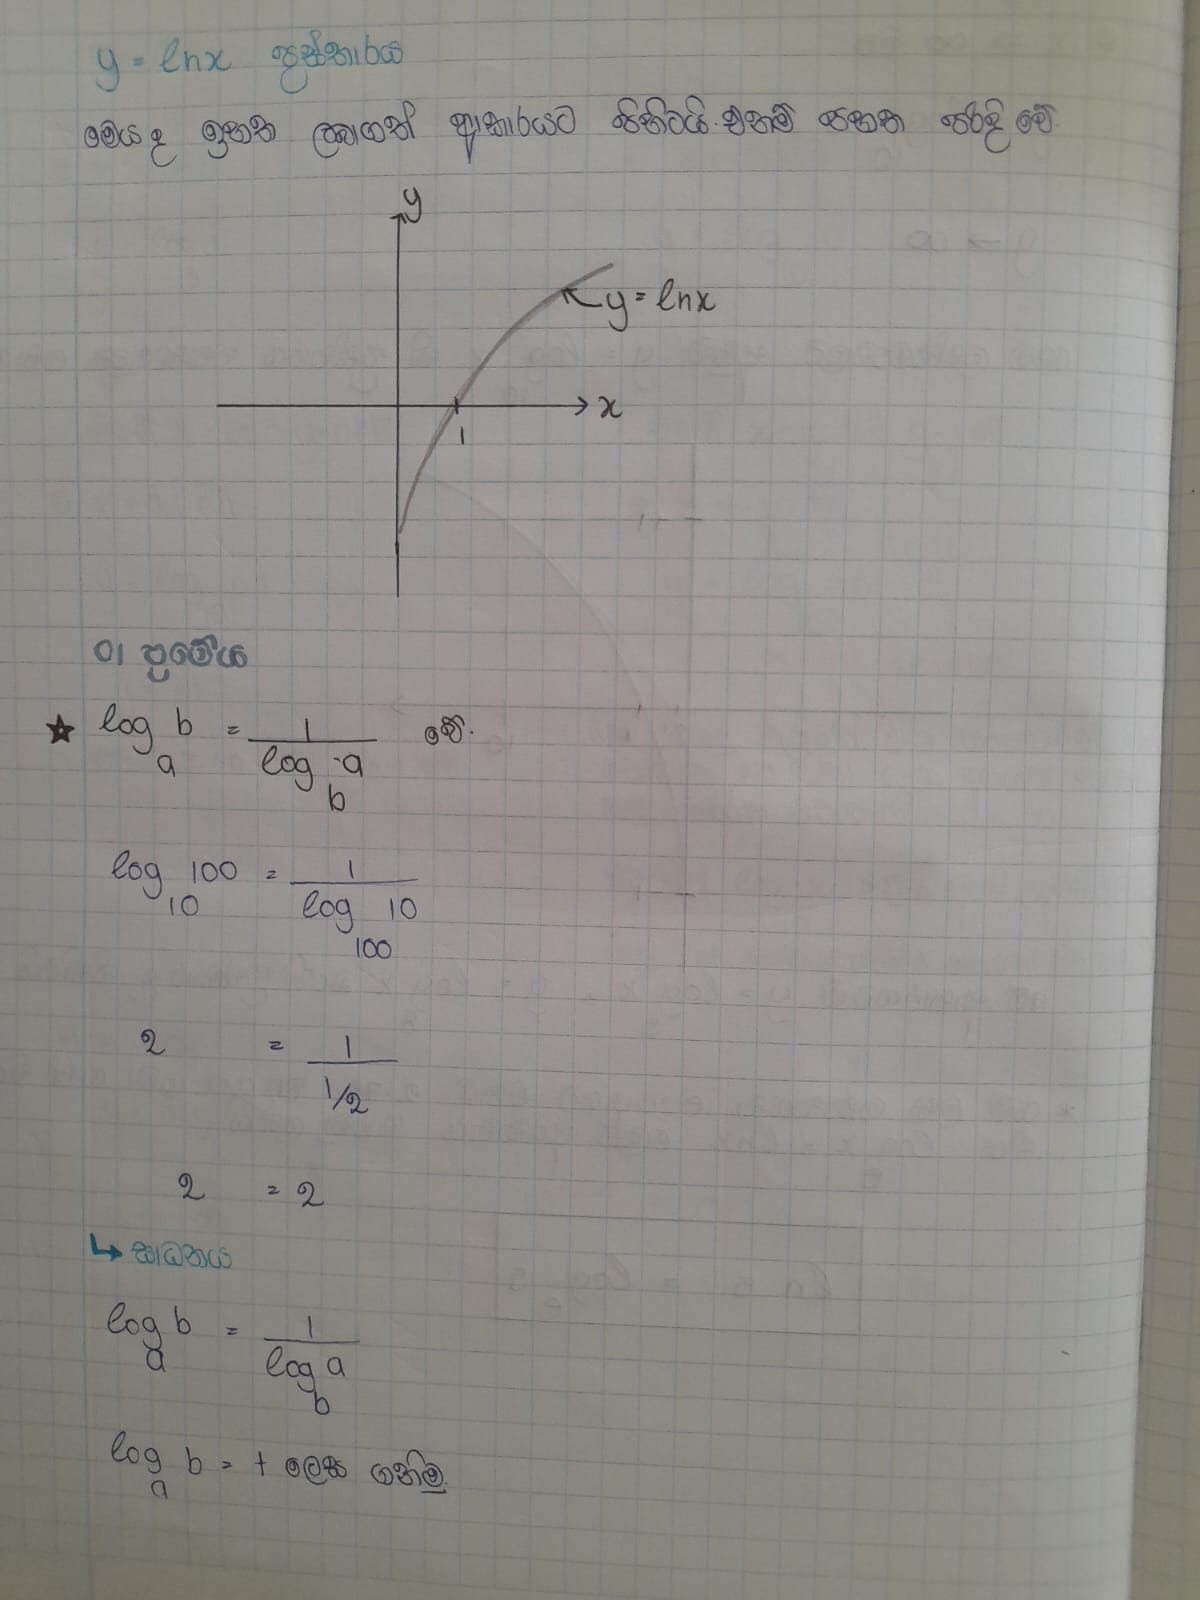 y = lnx ප්‍රස්තාරය
මෙය ද ඉහත ලබාගත් ආකාරයට පිහිටයි. එනම් පහත පරිදි වේ
y
y = lnx
x
1
01 ප්‍රමේය
★ log_a b = 1 / log_b a වේ.
log_10 100 = 1 / log_100 10
2 = 1 / 1/2
2 = 2
↳ සාධනය
log_a b = 1 / log_b a
log_a b = t ලෙස ගනිමු.